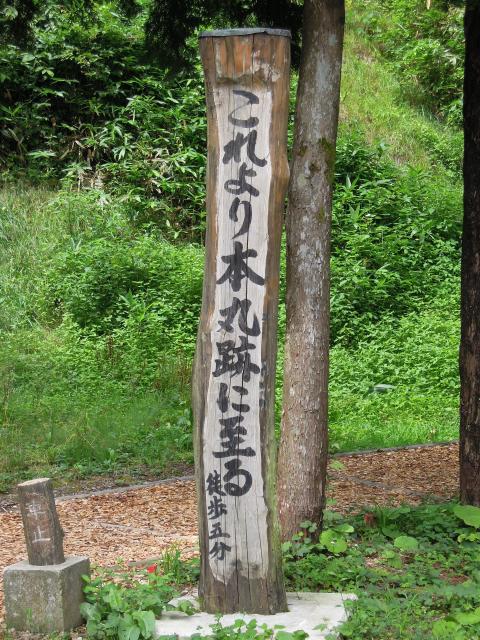 これより本丸跡に至る
徒歩五分
止